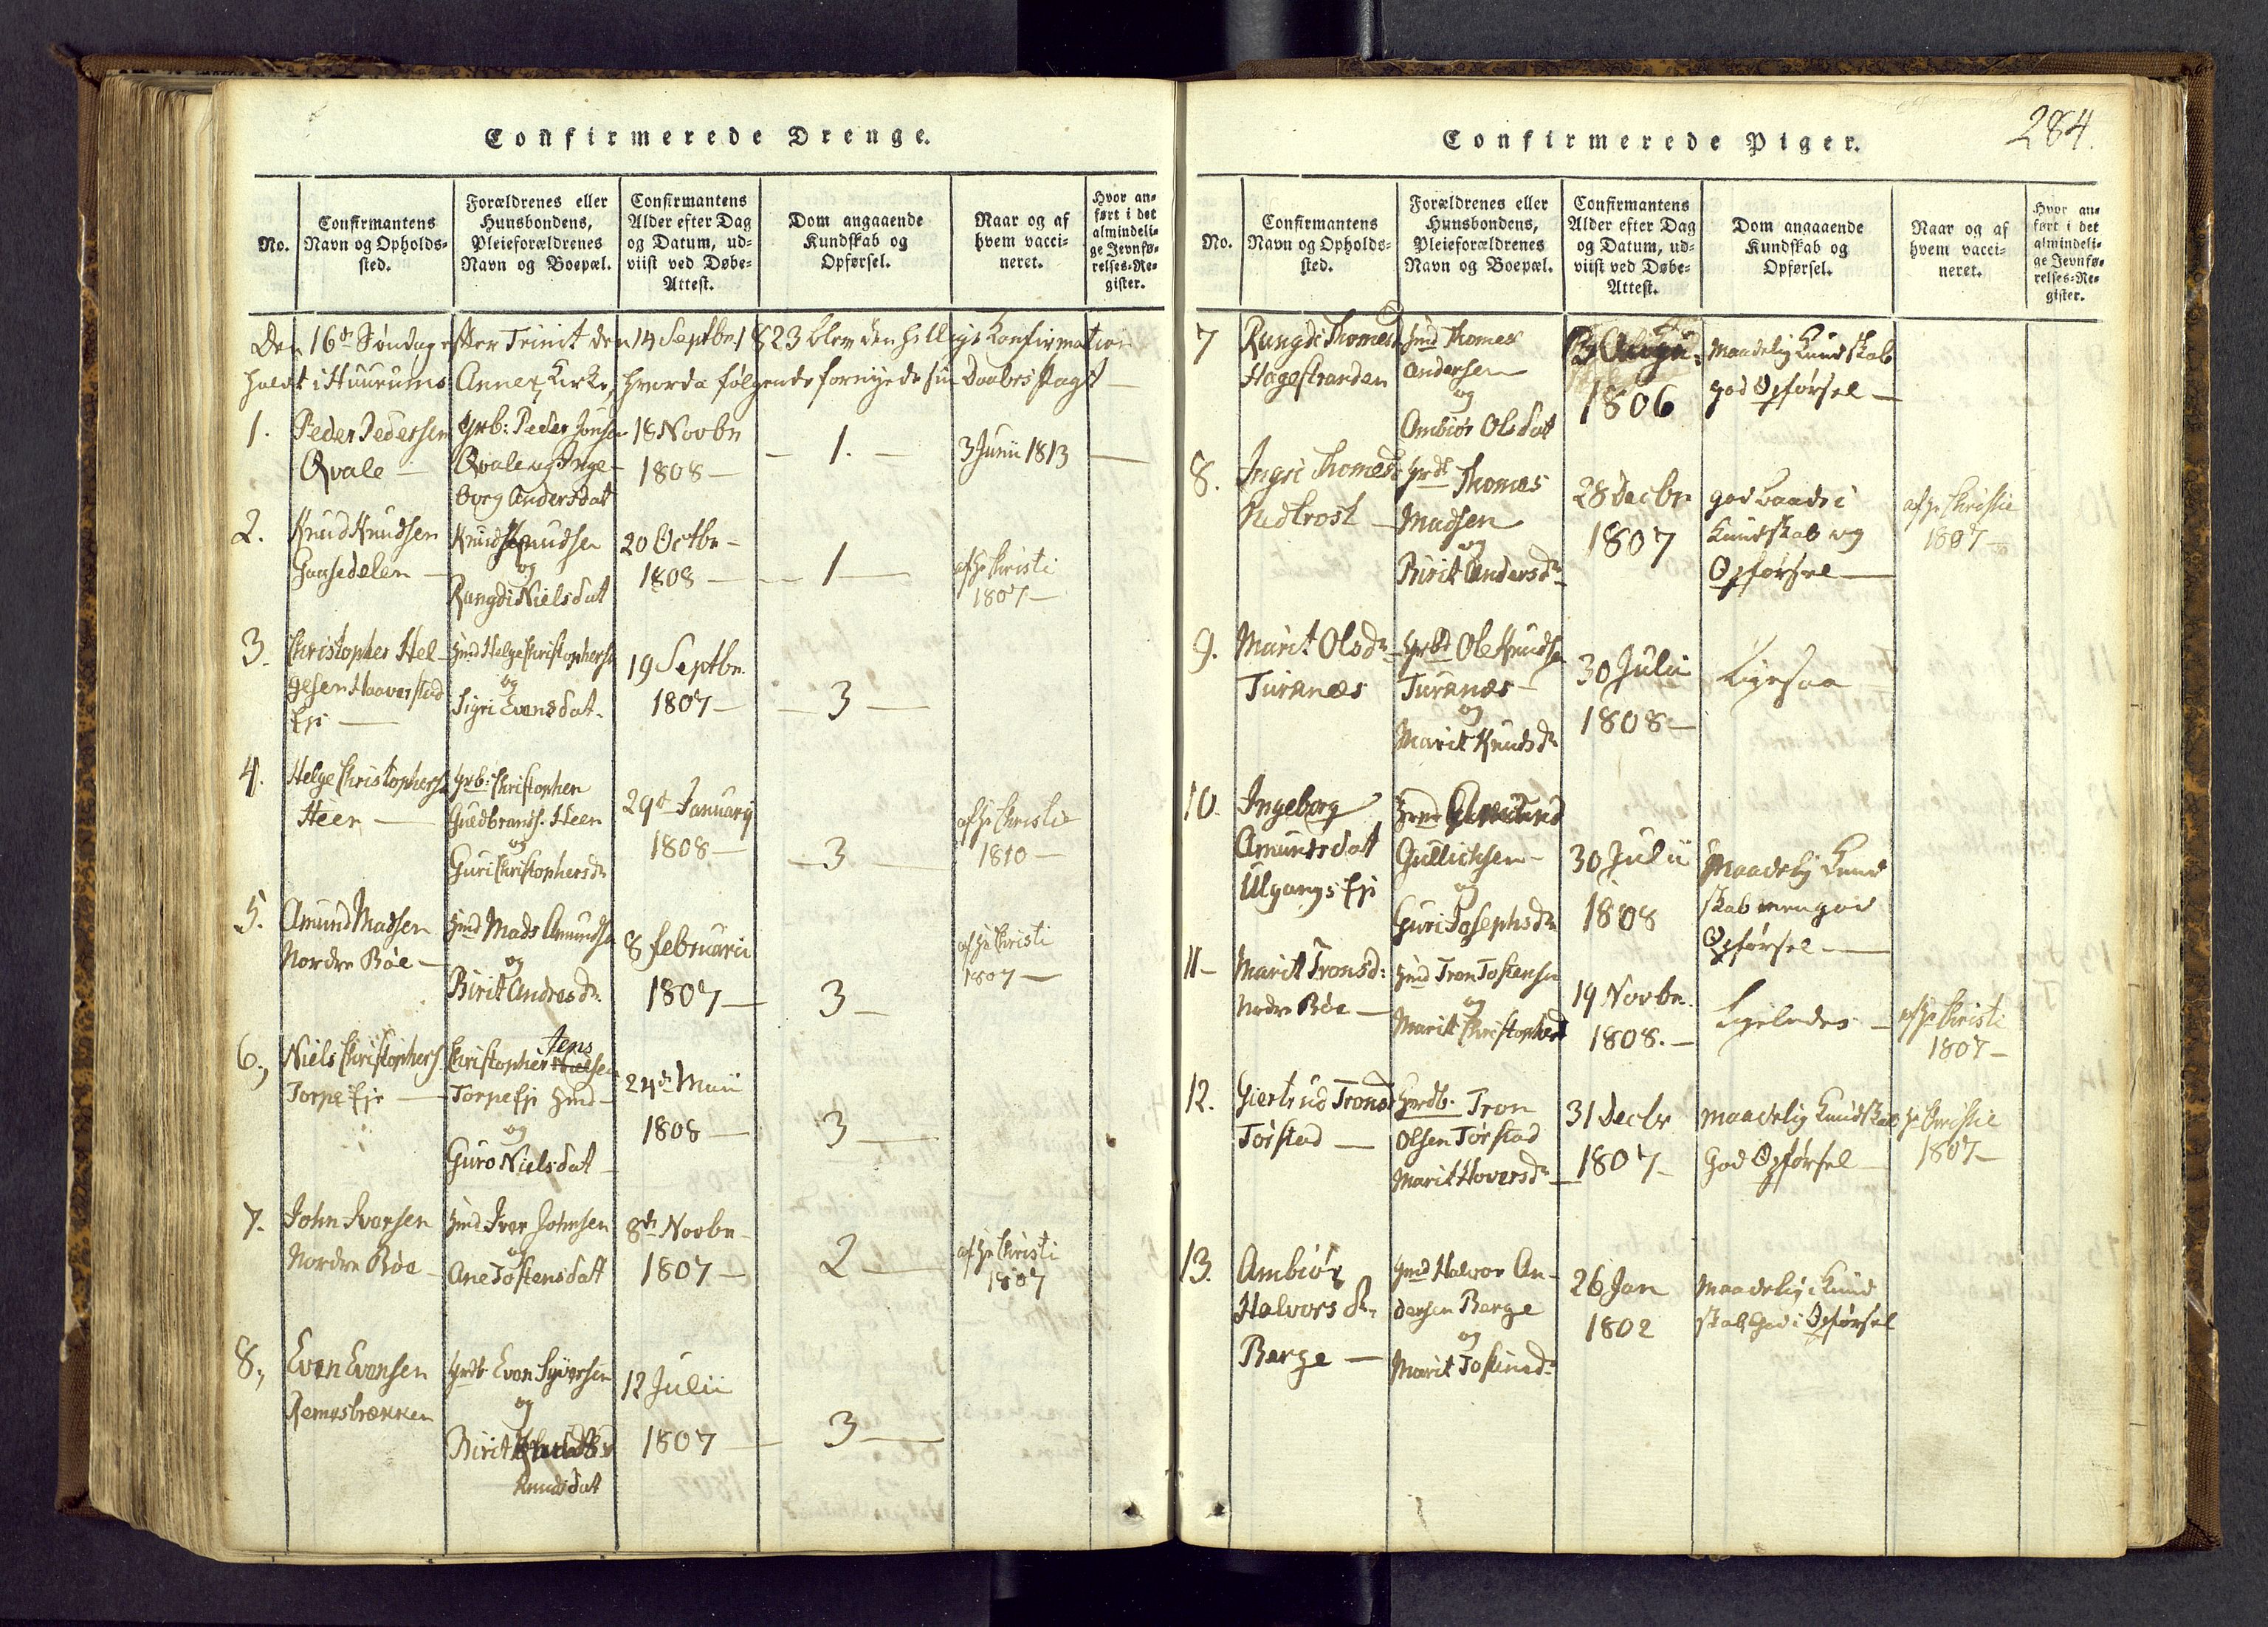 Confirmerede Drenge.
No.
Confirmantens
Navn og Opholds-
sted.
Forældrenes eller
Huusbondens,
Pleieforældrenes
Navn og Boepæl.
Confirmantens
Alder efter Dag
og Datum, ud-
viist ved Døbe-
Attest.
Dom angaaende
Kundskab og
Opførsel.
Naar og af
hvem vacci-
neret.
Hvor an-
ført i det
almindeli-
ge Jevnfø-
relses-Re-
gister.
Den 16de Søndag efter Trinit den 14 Septbr 1823 blev den hellige Confirmation
holdt i Huurums Annex Kirke, hvorda følgende fornyede sin Daabes Pagt
1. Peder Pedersen
Qvale
Grb: Peder Jonsen
Qvale og Inge-
borg Andersdat
18 Novbr
1808
1.
3 Junii 1813
2. Knud Knudsen
Gaasedelen
Knud Knudsen
og
Rangdi Nielsdat
20 Octbr
1808
1
af Hr Christi
1807
3. Christopher Hel-
gesen Haaverstad
Eje
Hmd Helge Christophersen
og
Sigri Evensdat
19 Septbr.
1807
3
4. Helge Christophersen
Heen
Grb: Christopher
Gudbrands. Heen
og
Guri Christophersdr
29de January
1808
3
af Hr Christie
1810
5. Amund Madsen
Nordre Bøe
Hmd Mads Amundsen
og
Birit Andresdr.
8 Februarii
1807
3
af Hr Christi
1807
6, Niels Christophers.
Torpe Eje
Jens
Christopher
Torpe Eje Hmd
og
Guro Nielsdat
24de Maii
1808
3
7. John Iversen
Nordre Bøe
Hmd Iver Johnsen
og
Ane Tostensdatt
8de Novbr
1807
2
af Hr Christi
1807
8, Even Evensen
Remesbrækken
Grdb Even Syversen
og
Birit
Knudsdat
12 Julii
1807
3
Confirmerede Piger.
284.
No.
Confirmantens
Navn og Opholds-
sted.
Forældrenes eller
Huusbondens,
Pleieforældrenes
Navn og Boepæl.
Confirmantens
Alder efter Dag
og Datum, ud-
viist ved Døbe-
Attest.
Dom angaaende
Kundskab og
Opførsel.
Naar og af
hvem vacci-
neret.
Hvor an-
ført i det
almindeli-
ge Jevnfø-
relses-Re-
gister.
7 Rangdi Thomesd
Hagestranden
Hmd Thomes
Andersen
og
Ambiør Olsdat
1806
Maadelig Kundskab
god Opførsel
8. Ingri Thomesdr
Thomes
Madsen
og
Birit Andersdr
28 Decbr
1807
god baade i
Kundskab og
Opførsel
af Hr Christie
1807
9. Marit Olsdr
Turknæs
Grbd Ole Knudsen
Turknæs
og
Marit Knudsdr
30 Julii
1808
Ligesaa
10. Ingeborg
Amundsdat
Ulgangs Eje
Hmd Amund
Gullichsen
og
Guri Josephsdr
30 Julii
1808
Maadelig Kund
skab men god
Opførsel
11 Marit Tronsd:
Nordre Bøe
Hmd Tron Tostensen
og
Marit Christophersd
19 Novbr.
1808.
Ligeledes
af Hr Christi
1807
12. Giertrud Tronsd
Torstad
Grdb. Tron
Olsen Torstad
Marit Hoversdr
31 Decbr
1807
maadelig Kundskab
God Opførsel
Hr Christie
1807
13. Ambiør
Halvorsdr,
Berge
Hmd Halvor An-
dersen Berge
og
Marit Tostensdr
26 Jan
1802
Maadelig i Kund
skab, God i Opførsel